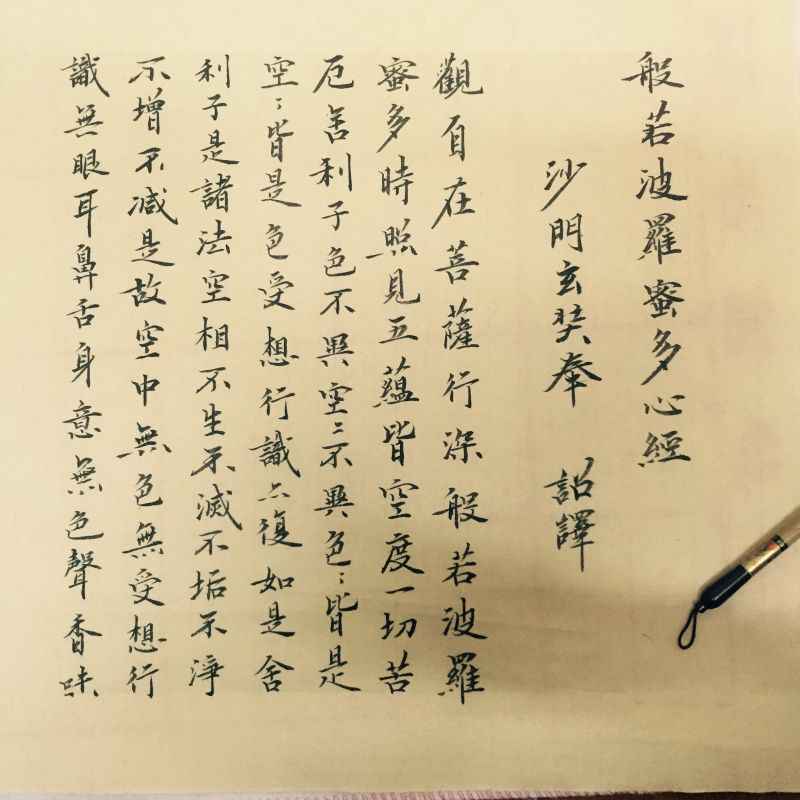 般若波羅蜜多心經
沙門玄奘奉 詔譯
觀自在菩薩行深般若波羅
蜜多時照見五蘊皆空度一切苦
厄舍利子色不異空〻不異色〻皆是
空〻皆是色受想行識亦復如是舍
利子是諸法空相不生不滅不垢不淨
不增不减是故空中無色無受想行
識無眼耳鼻舌身意無色聲香味